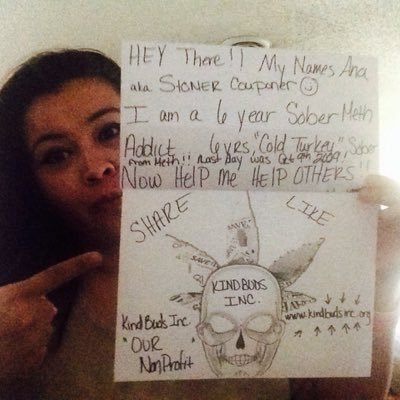 HEY There!! My Names Ana
aka STONER Couponer
I am a 6 year Sober Meth
Addict 6 yrs, "Cold Turkey" Sober
From Meth!! Last Day was Oct 9th 2009!
NOW HELP ME HELP OTHERS!!
SHARE LIKE
SAVE
SAVE
KINDBUDS
INC.
KindBuds Inc. www.kindbudsinc.org
"OUR
NonProfit